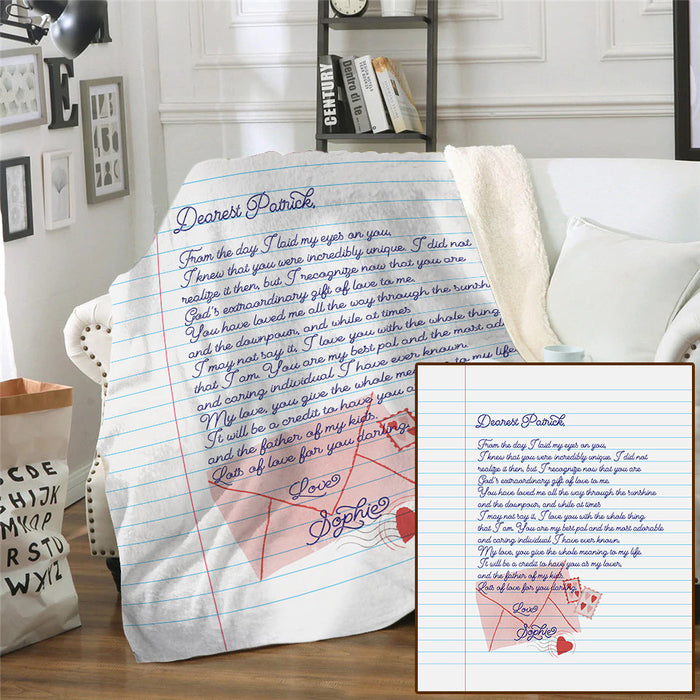 CENTURY
Dentro di te
E
CDE
SHIJK
MNOP
RSTUV
WXYZ
Dearest Patrick,
From the day I laid my eyes on you,
I knew that you were incredibly unique. I did not
realize it then, but I recognize now that you are
God's extraordinary gift of love to me.
You have loved me all the way through the sunshi
and the downpour, and while at times
I may not say it, I love you with the whole thing
that I am. You are my best pal and the most ador
and caring individual I have ever known.
My love, you give the whole mea to my life.
It will be a credit to have you a
and the father of my kids.
Lots of love for you darling.
Love
Sophie
Dearest Patrick,
From the day I laid my eyes on you,
I knew that you were incredibly unique. I did not
realize it then, but I recognize now that you are
God's extraordinary gift of love to me.
You have loved me all the way through the sunshine
and the downpour, and while at times
I may not say it, I love you with the whole thing
that I am. You are my best pal and the most adorable
and caring individual I have ever known.
My love, you give the whole meaning to my life.
It will be a credit to have you as my lover,
and the father of my kids.
Lots of love for you darling.
Love
Sophie